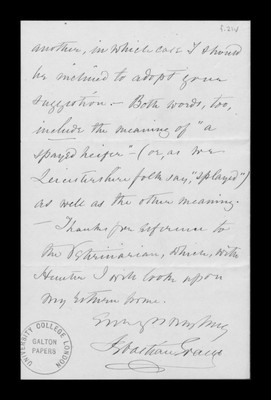 f.214
another, in which case I should
be inclined to adopt your
suggestion. — Both words, too,
include the meaning of "a
spayed heifer" — (or, as we
Leicestershire folk say, "splayed")
as well as the other meaning.
— Thanks for reference to
the Veterinarian, which, with
Hunter I will look upon
my return home.
Jonathan
UNIVERSITY COLLEGE LONDON
GALTON
PAPERS